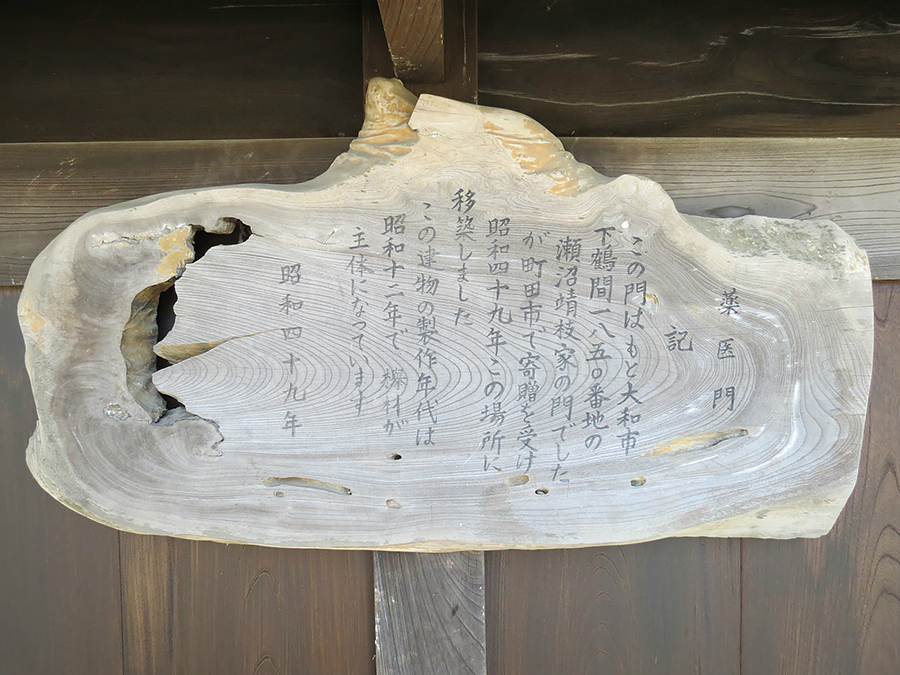 薬医門
記
この門はもと大和市
下鶴間一八五〇番地の
瀬沼靖枝家の門でした
が町田市で寄贈を受け
昭和四十九年この場所に
移築しました
この建物の製作年代は
昭和十二年で、欅材が
主体になっています
昭和四十九年